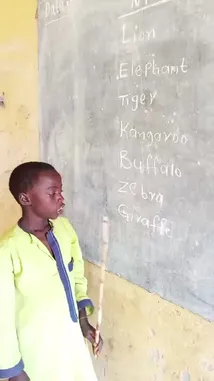 Lion
Elephant
Tiger
Kangaroo
Buffalo
Zebra
Giraffe